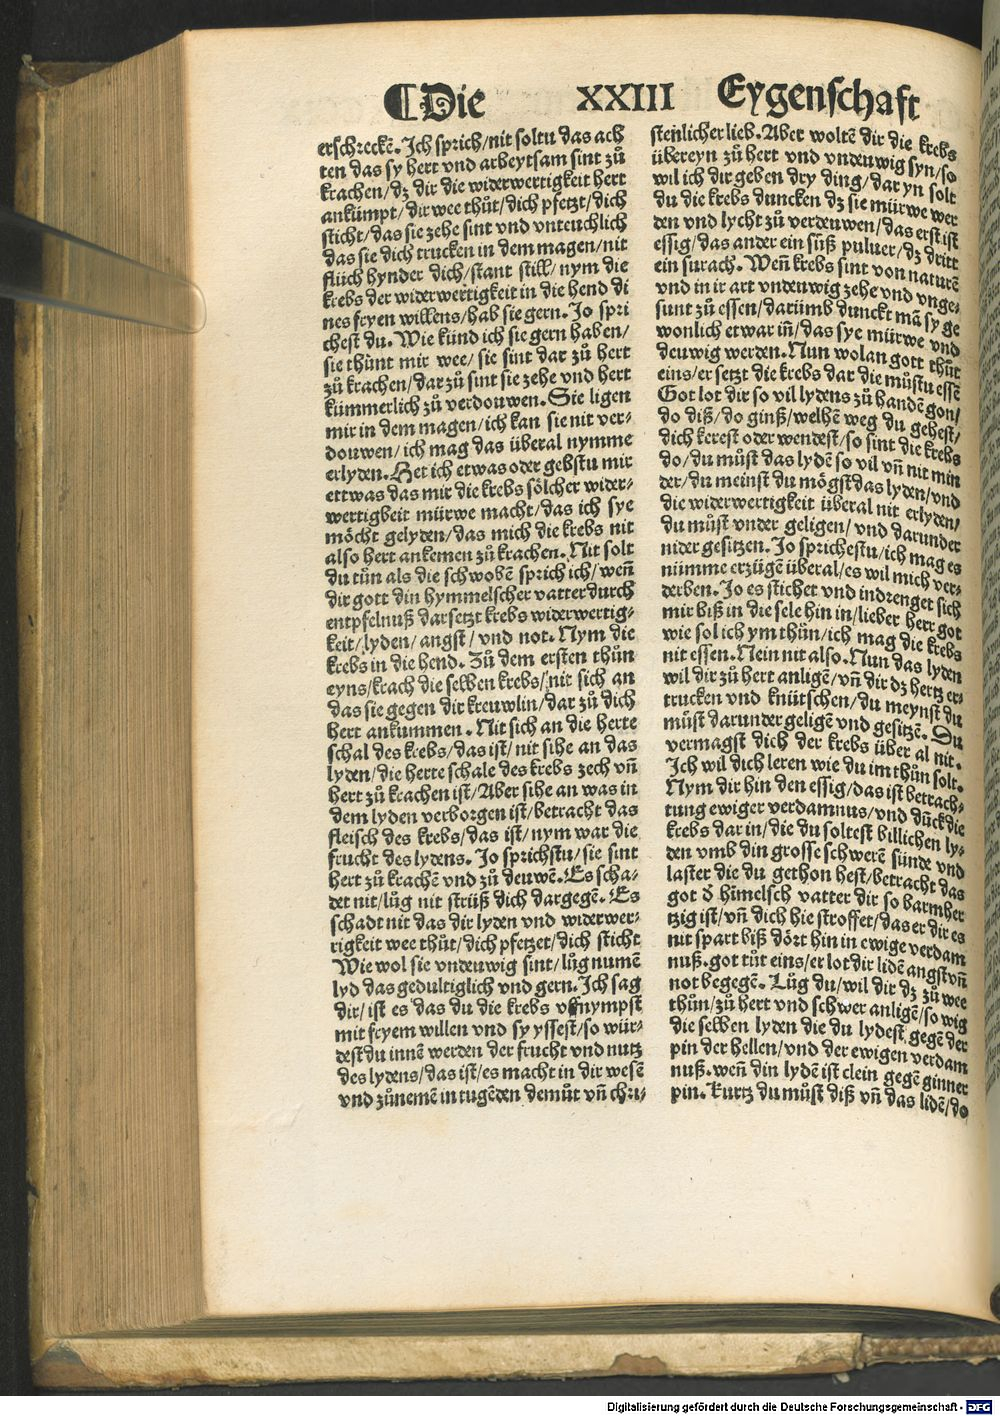 ¶Die XXIII Eygenschaft
erschreckē. Ich sprich/nit soltu das ach
ten das sy hert vnd arbeytsam sint zů
krachen/dz dir die widerwertigkeit hert
ankümpt/dir wee thůt/dich pfetzt/dich
sticht/das sie zehe sint vnd vnteuchlich
das sie dich trucken in dem magen/nit
flüch hynder dich/stant still/nym die
krebs der widerwertigkeit in die hend di
nes fryen willens/hab sie gern. Jo spri
chest du. Wie künd ich sie gern haben/
sie thünt mir wee/sie sint dar zů hert
zů krachen/dar zů sint sie zehe vnd hert
kümmerlich zů verdouwen. Sie ligen
mir in dem magen/ich kan sie nit ver-
douwen/ich mag das überal nymme
erlyden. Het ich etwas oder gebstu mir
ettwas das mir die krebs sölcher wider-
wertigbeit mürwe macht/das ich sye
möcht gelyden/das mich die krebs nit
also hert ankemen zů krachen. Nit solt
du tůn als die schwobē sprich ich/weñ
dir gott din hymmelscher vatter durch
entpfelnuß darsetzt krebs widerwertig-
keit/lyden/angst/vnd not. Nym die
krebs in die hend. Zů dem ersten thůn
eyns/krach die selben krebs/nit sich an
das sie gegen dir kreuwlin/dar zů dich
hert ankummen. Nit sich an die herte
schal des krebs/das ist/nit sihe an das
lyden/die herte schale des krebs zech vñ
hert zů krachen ist/Aber sihe an was in
dem lyden verborgen ist/betracht das
fleisch des krebs/das ist/nym war die
frucht des lydens. Jo sprichstu/sie sint
hert zů krachē vnd zů deuwē. Es scha-
det nit/lůg nit strüß dich dargegē. Es
schadt nit das dir lyden vnd widerwer-
rigkeit wee thůt/dich pfetzet/dich sticht
Wie wol sie vndeuwig sint/lůg numē
lyd das gedultiglich vnd gern. Ich sag
dir/ist es das du die krebs vffnympst
mit fryem willen vnd sy yssest/so wür-
dest du innē werden der frucht vnd nutz
des lydens/das ist/es macht in dir wesē
vnd zůnemē in tugēden demůt vñ chri-
stenlicher lieb. Aber woltē dir die krebs
übereyn zů hert vnd vndeuwig syn/so
wil ich dir geben dry ding/dar yn solt
du die krebs duncken dz sie mürwe wer
den vnd lycht zů verdeuwen/das erst ist
essig/das ander ein süß puluer/dz dritt
ein surach. Weñ krebs sint von naturē
vnd in ir art vndeuwig zehe vnd vnge-
sunt zů essen/darümb dunckt mā sy ge
wonlich etwar iñ/das sye mürwe vnd
deuwig werden. Nun wolan gott thůt
eins/er setzt die krebs dar die můstu essē
Got lot dir so vil lydens zů handē gon/
do diß/do ginß/welhē weg du gehest/
dich kerest oder wendest/so sint die krebs
do/du můst das lydē so vil vñ nit min
der/du meinst du mögst das lyden/vnd
die widerwertigkeit überal nit erlyden/
du můst vnder geligen/vnd darunder
nider gesitzen. Jo sprichestu/ich mag es
nümme erzügē überal/es wil mich ver-
derben. Jo es stichet vnd indrenget sich
mir biß in die sele hin in/lieber herr got
wie sol ich ym thůn/ich mag die krebs
nit essen. Nein nit also. Nun das lyden
wil dir zů hert anligē/vñ dir dz hertz er-
trucken vnd knütschen/du meynst du
můst darunder geligē vnd gesitzē. Du
vermagst dich der krebs über al nit.
Ich wil dich leren wie du im thůn solt.
Nym dir hin den essig/das ist betrach-
tung ewiger verdamnus/vnd dūck die
krebs dar in/die du soltest billichen ly-
den vmb din grosse schwerē sünde vnd
laster die du gethon hest/betracht das
got d̄ himelsch vatter dir so barmher
tzig ist/vñ dich hie stroffet/das er dir es
nit spart biß dört hin in ewige verdam
nuß. got tůt eins/er lot dir lidē angst vñ
not begegē. Lůg du/wil dir dz zů wee
thůn/zů hert vnd schwer anligē/so wig
die selben lyden die du lydest gegē der
pin der hellen/vnd der ewigen verdam
nuß. weñ din lydē ist clein gegē ginner
pin. Kurtz du můst diß vñ das lidē/do
Digitalisierung gefördert durch die Deutsche Forschungsgemeinschaft - DFG